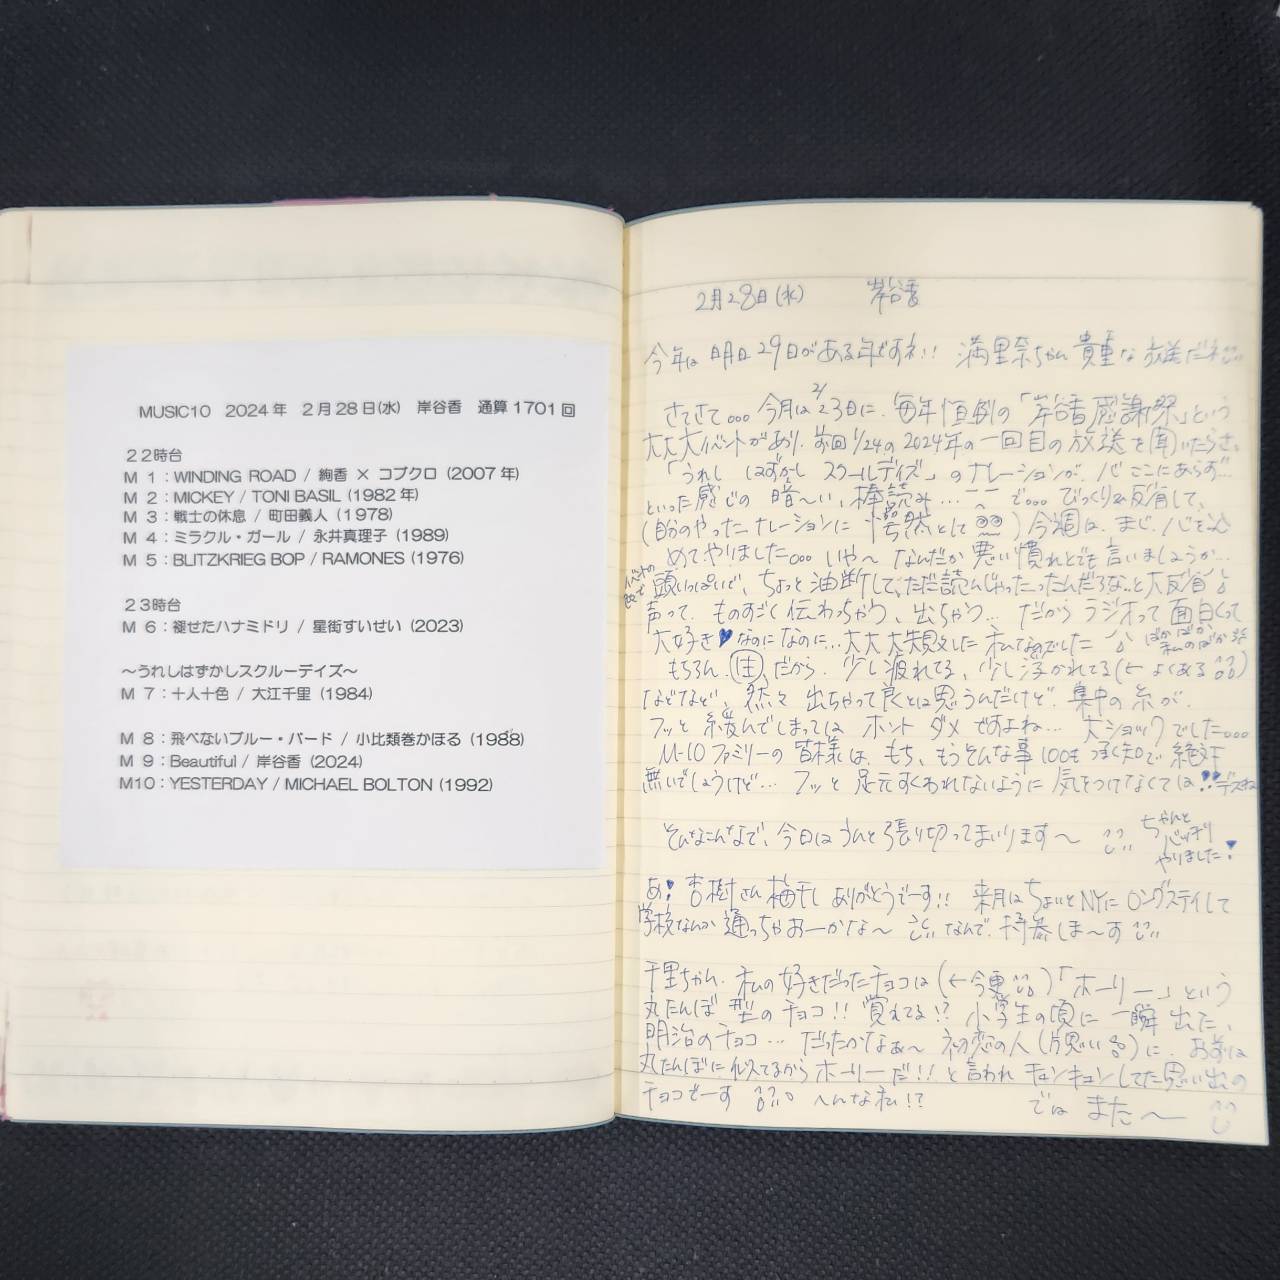 MUSIC10 2024年 2月28日(水) 岸谷香 通算1701回
22時台
M 1：WINDING ROAD / 絢香 × コブクロ (2007年)
M 2：MICKEY / TONI BASIL (1982年)
M 3：戦士の休息 / 町田義人 (1978)
M 4：ミラクル・ガール / 永井真理子 (1989)
M 5：BLITZKRIEG BOP / RAMONES (1976)
23時台
M 6：褪せたハナミドリ / 星街すいせい (2023)
～うれしはずかしスクルーデイズ～
M 7：十人十色 / 大江千里 (1984)
M 8：飛べないブルー・バード / 小比類巻かほる (1988)
M 9：Beautiful / 岸谷香 (2024)
M10：YESTERDAY / MICHAEL BOLTON (1992)
2月28日(水) 岸谷香
今年は明日29日がある年ですネ!! 満里奈ちゃん貴重な放送だネ
さてさて… 今月は2/23日に、毎年恒例の「岸谷香感謝祭」という
大大大イベントがあり、前回1/24の2024年の一回目の放送を聞いたらさ、
「うれし はずかし スクールデイズ」のナレーションが、心ここにあらず…
といった感じの 暗〜い、棒読み… で… びっくり&反省して、
(自分のやったナレーションに 愕然として) 今週は、まじ、心を込
めてやりました… いや〜 なんだか悪い慣れとでも言いましょうか…
イベントの事で 頭いっぱいで、ちょっと油断して、ただ読んじゃったったんだろなぁと大反省
声って、ものすごく伝わっちゃう、出ちゃう… だからラジオって面白くって
大好き♥なのになのに… 大大大失敗した私なのでした ばかばか、私のばか
もちろん、生だから、少し疲れてる、少し浮かれてる(←よくある)
などなど、然々出ちゃって良とは思うんだけど、集中の糸が、
フッと緩んでしまっては ホント ダメですよね… 大ショックでした…
M-10ファミリーの皆様は、もち、もうそんな事100も承知で絶対
無いでしょうけど… フッと足元すくわれないように気をつけなくては!!デスね
そんなこんなで、今日はうんと張り切ってまいります〜 ちゃんとバッチリやりました!
あ! 杏樹さん梅干しありがとうでーす!! 来月はちょいとNYにロングステイして
学校なんか通っちゃおーかな〜 なんで、持参しま〜す
千里ちゃん、私の好きだったチョコは(←今更)「ホーリー」という
丸たんぼ型のチョコ!! 覚えてる!? 小学生の頃に一瞬出た、
明治のチョコ… だったかなぁ〜 初恋の人(片思い)に、お前は
丸たんぼに似てるからホーリーだ!! と言われ キュンキュンしてた思い出の
チョコでーす へんな私!? ではまた〜